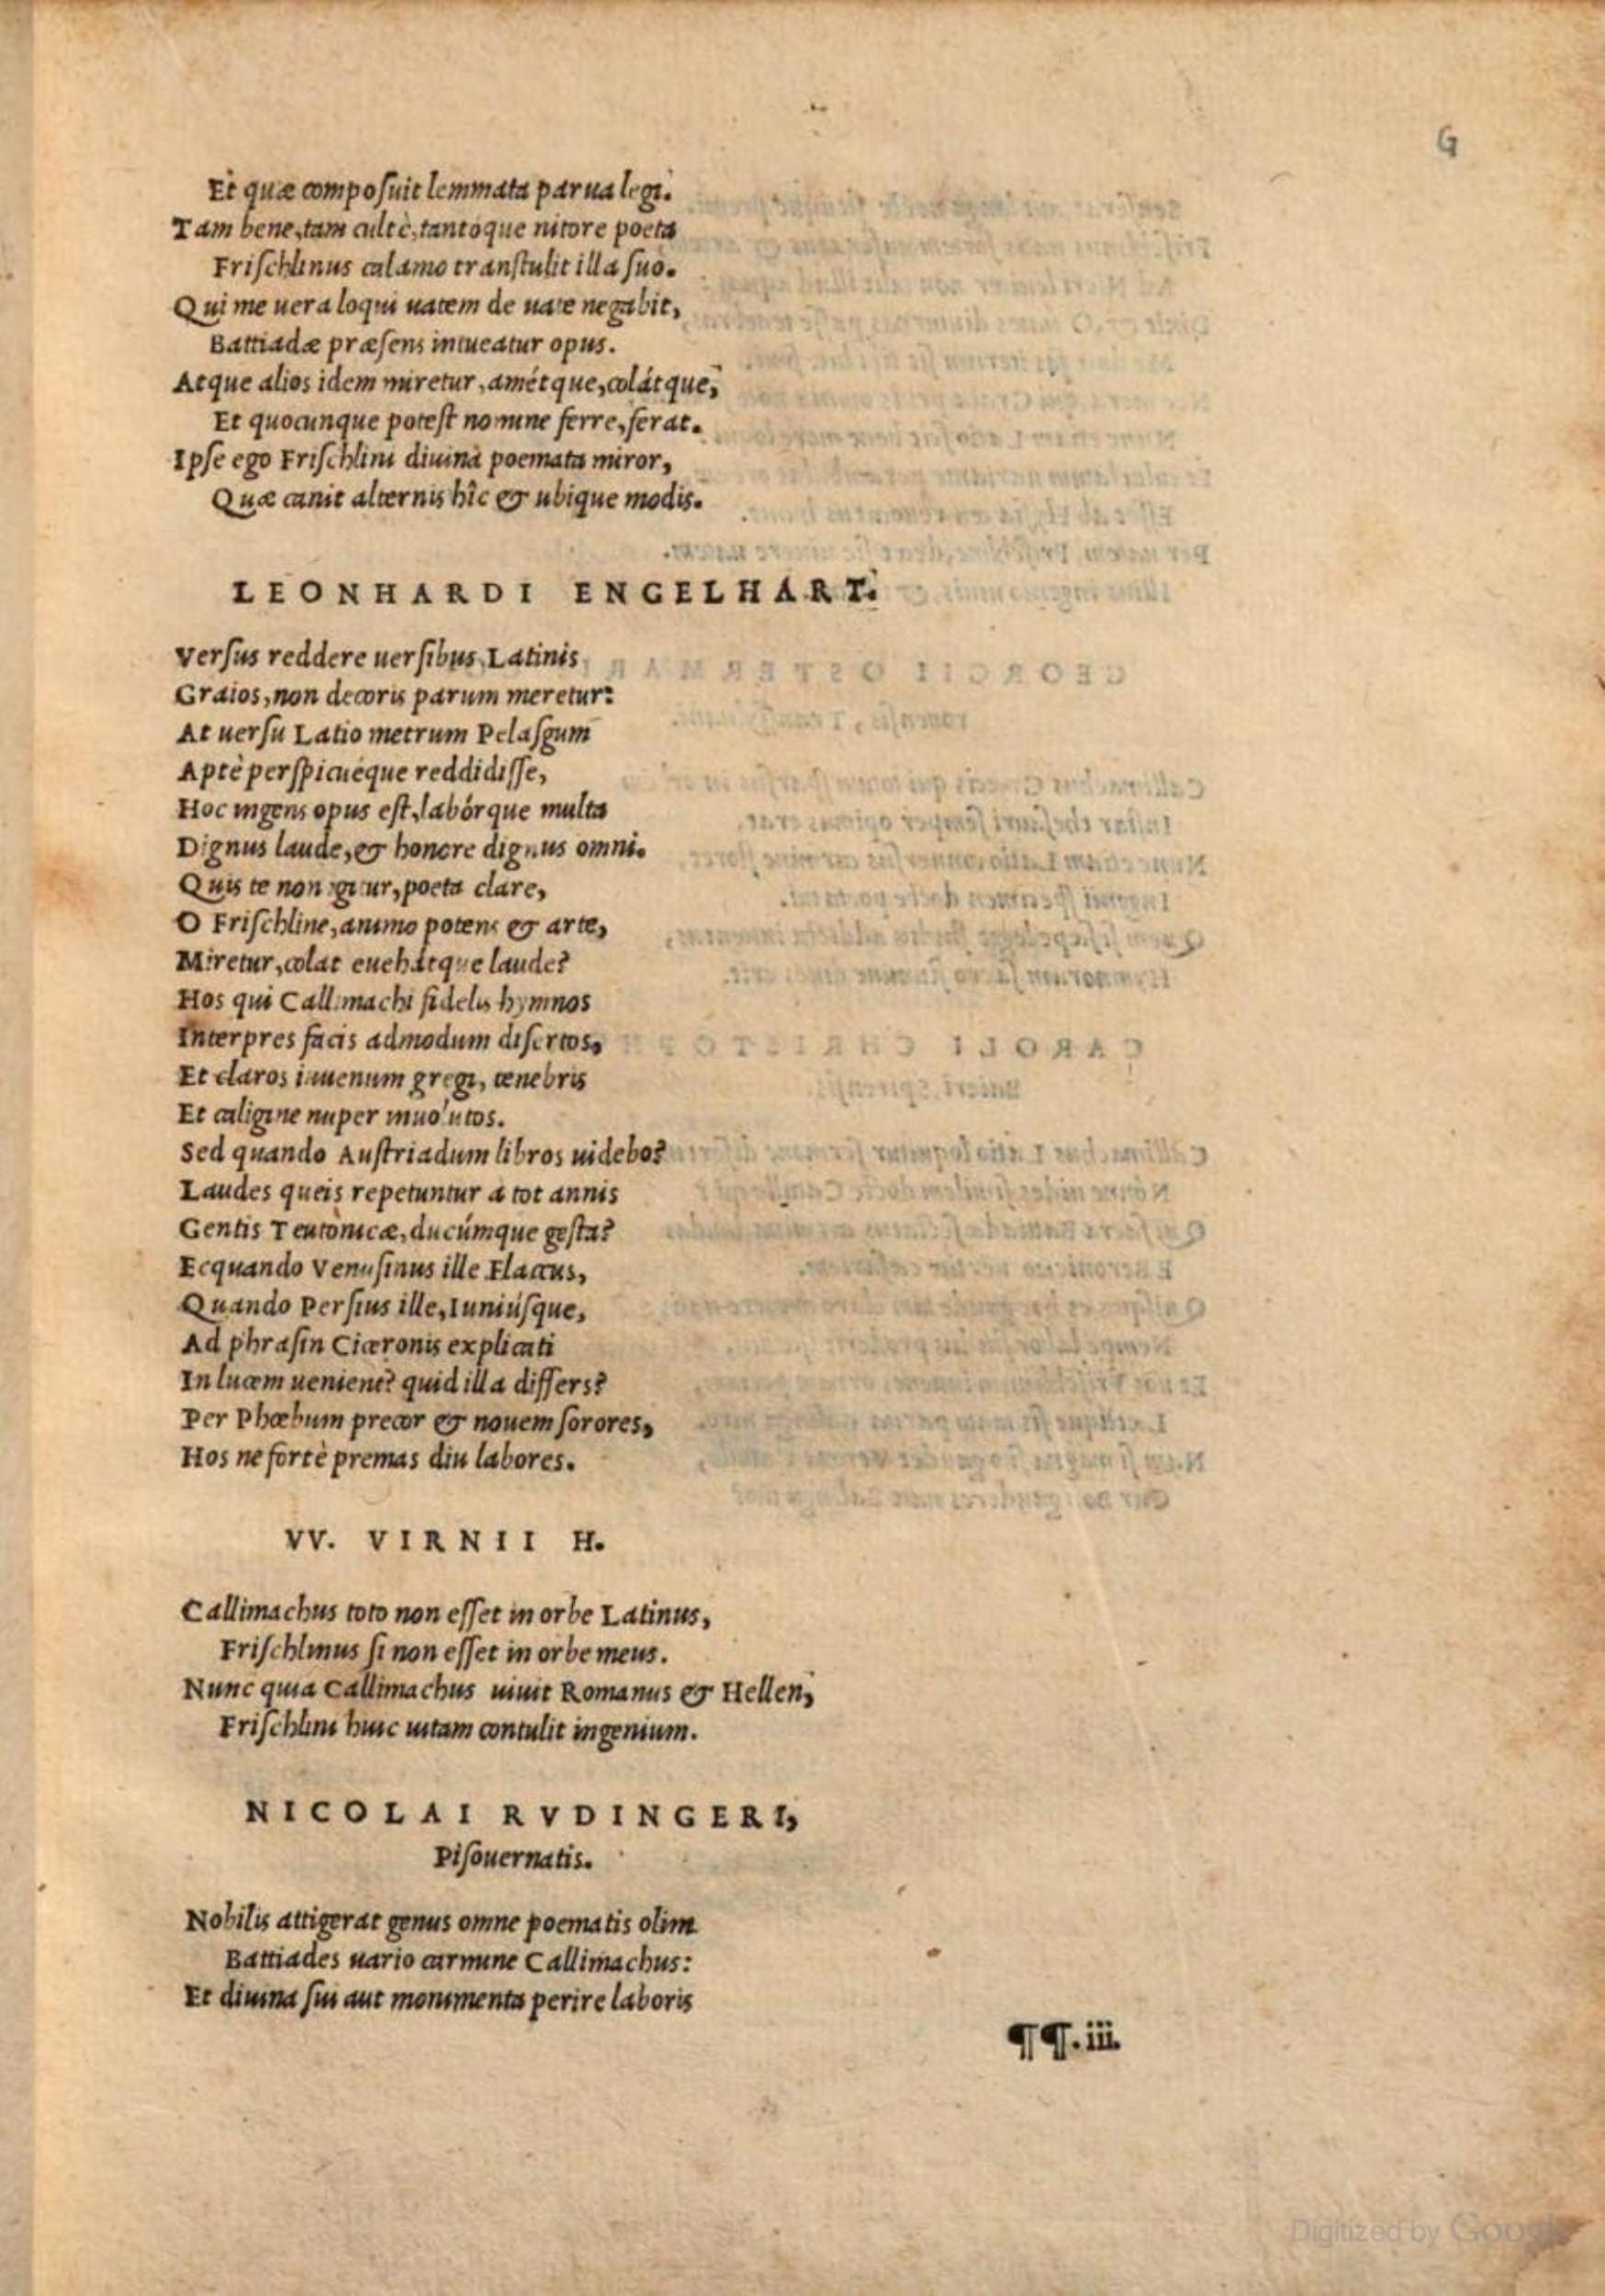 G
Et quæ composuit lemmata parua legi.
Tam bene, tam cultè, tantoque nitore poeta
Frischlinus calamo transtulit illa suo.
Qui me uera loqui uatem de uate negabit,
Battiadæ præsens intueatur opus.
Atque alios idem miretur, amétque, colátque,
Et quocunque potest nomine ferre, ferat.
Ipse ego Frischlini diuina poemata miror,
Quæ canit alternis hîc & ubique modis.
LEONHARDI ENGELHART.
Versus reddere uersibus Latinis
Graios, non decoris parum meretur:
At uersu Latio metrum Pelasgum
Aptè perspicuéque reddidisse,
Hoc ingens opus est, labórque multa
Dignus laude, & honore dignus omni.
Quis te non igitur, poeta clare,
O Frischline, animo potens & arte,
Miretur, colat euehátque laude?
Hos qui Callimachi fidelis hymnos
Interpres facis admodum disertos,
Et claros iuuenum gregi, tenebris
Et caligine nuper inuolutos.
Sed quando Austriadum libros uidebo?
Laudes queis repetuntur a tot annis
Gentis Teutonicæ, ducúmque gesta?
Ecquando Venusinus ille Flaccus,
Quando Persius ille, Iuniúsque,
Ad phrasin Ciceronis explicati
In lucem uenient? quid illa differs?
Per Phœbum precor & nouem sorores,
Hos ne fortè premas diu labores.
VV. VIRNII H.
Callimachus toto non esset in orbe Latinus,
Frischlinus si non esset in orbe meus.
Nunc quia Callimachus uiuit Romanus & Hellen,
Frischlini huic uitam contulit ingenium.
NICOLAI RVDINGERI,
Pisouernatis.
Nobilis attigerat genus omne poematis olim
Battiades uario carmine Callimachus:
Et diuina sui aut monumenta perire laboris
¶¶.iii.
Digitized by Google